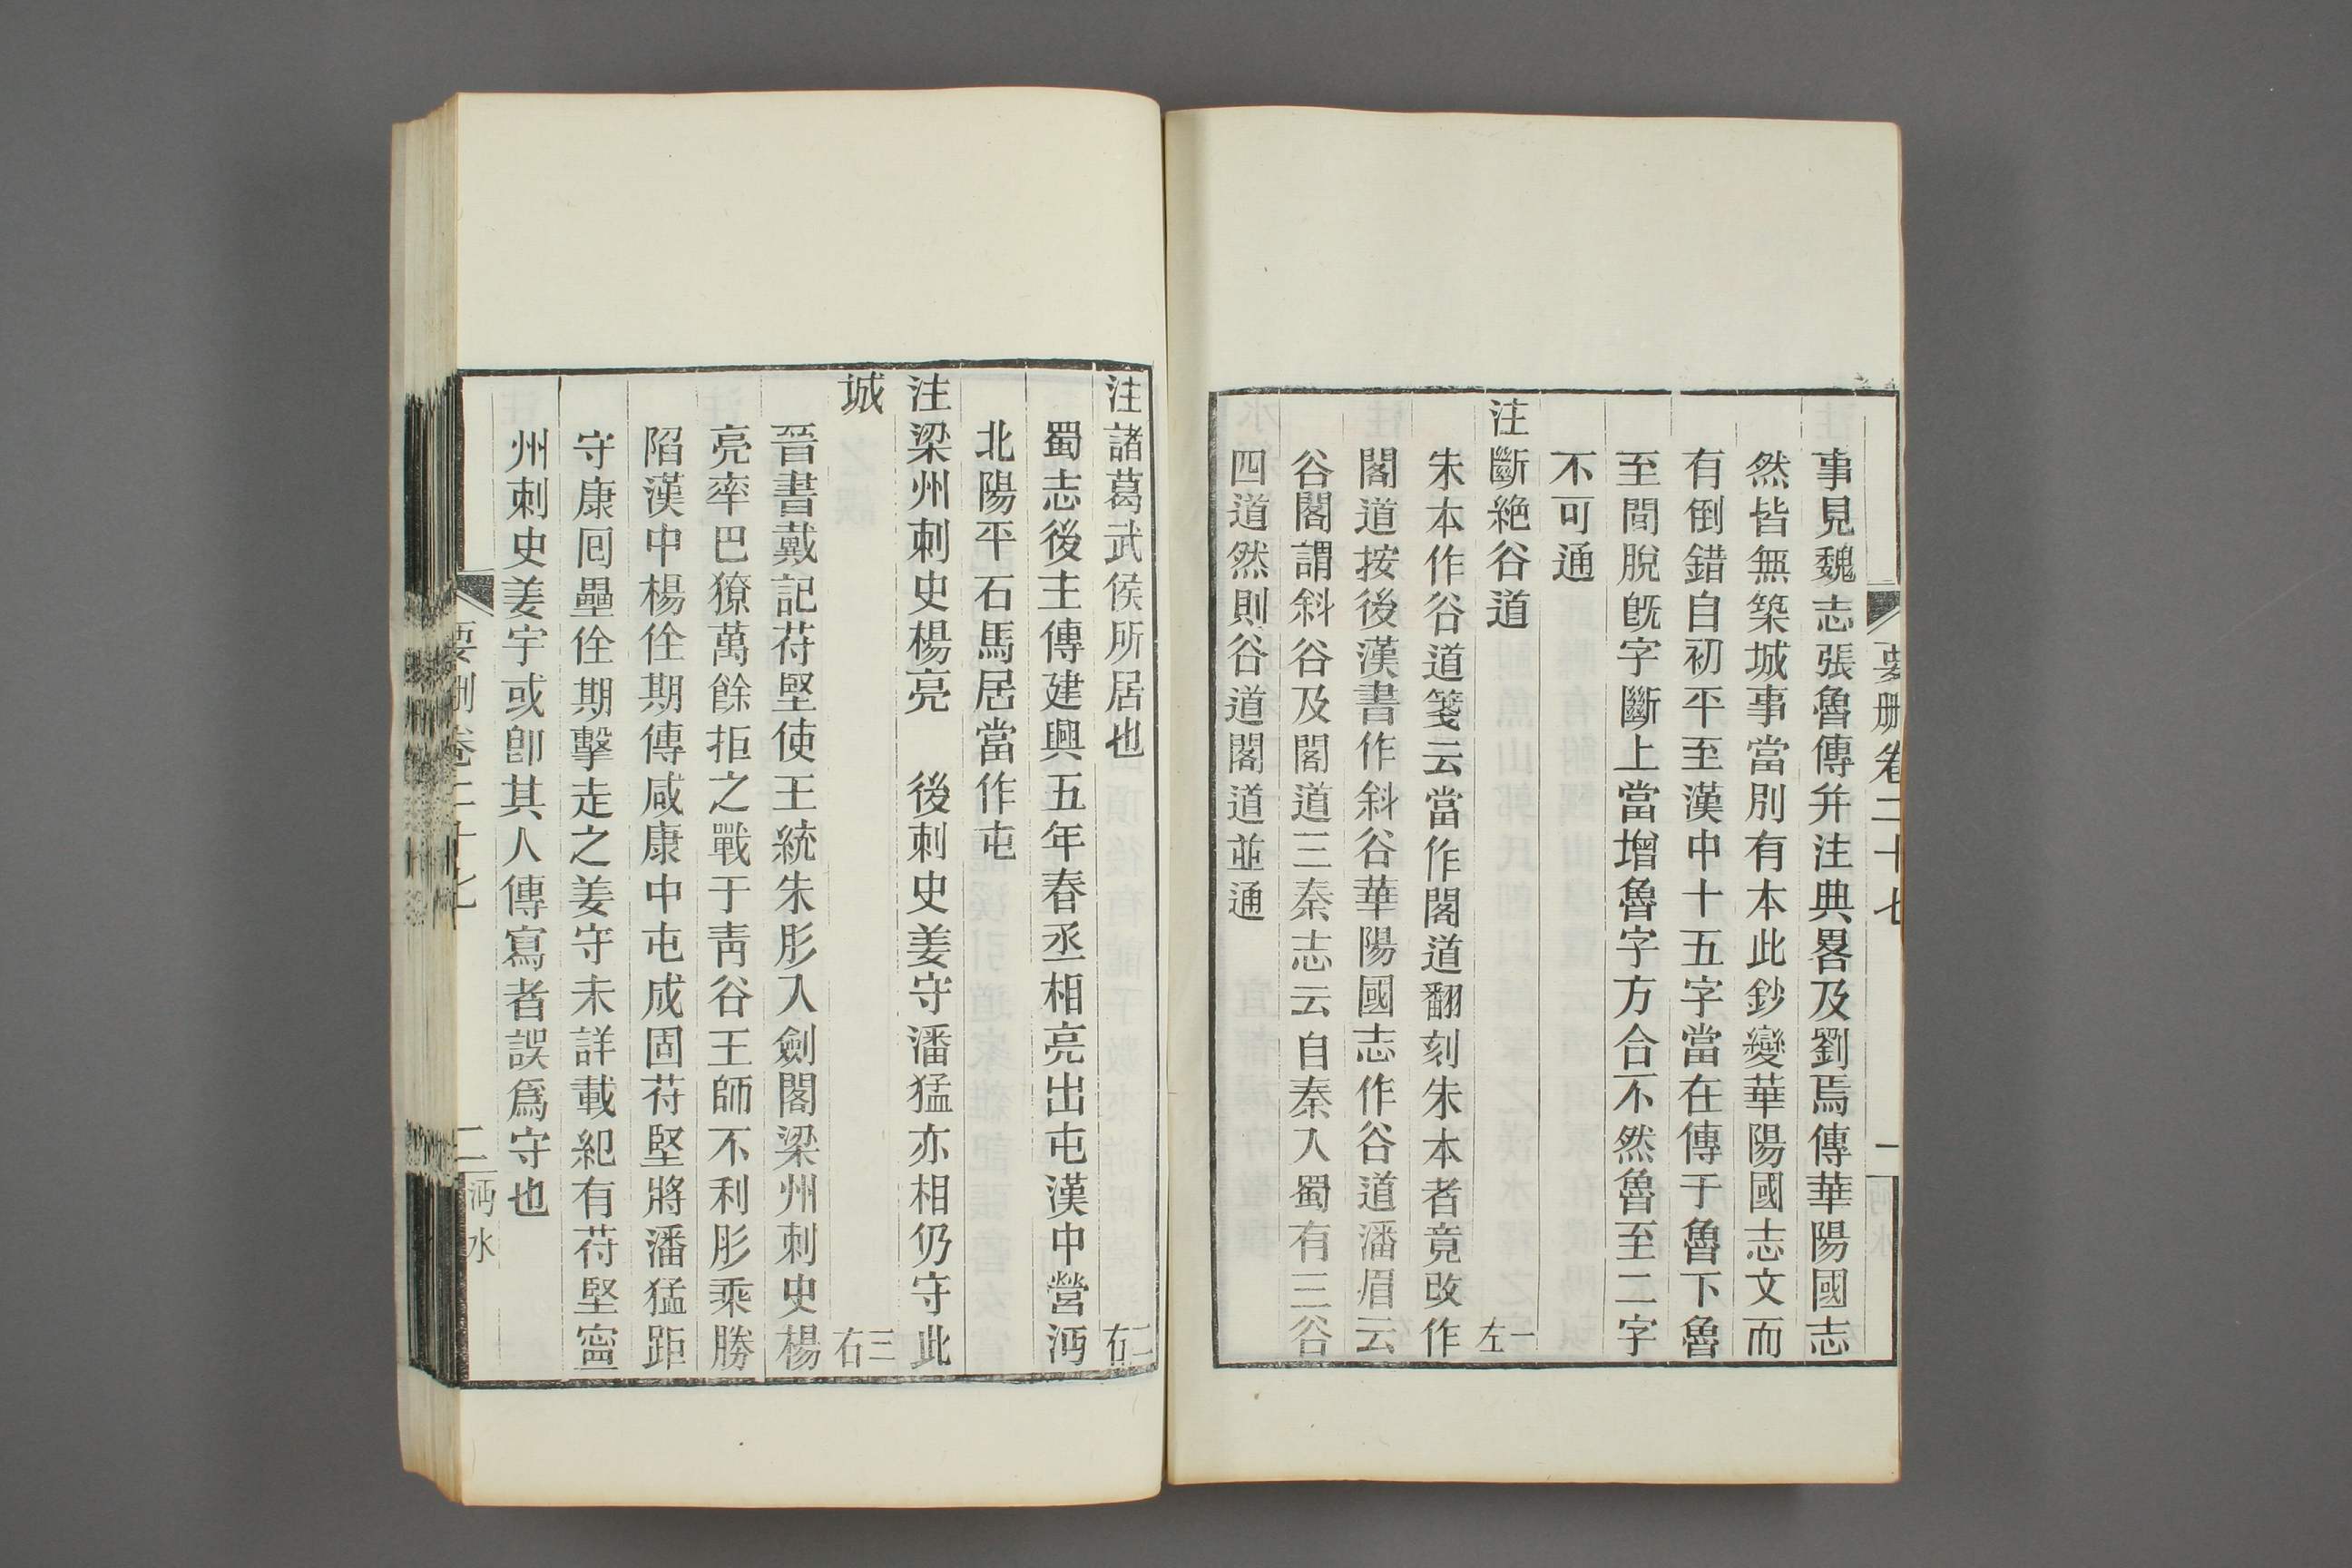 要刪卷二十七
一
沔水
事見魏志張魯傳并注典畧及劉焉傳華陽國志
然皆無築城事當別有本此鈔變華陽國志文而
有倒錯自初平至漢中十五字當在傳于魯下魯
至閒脫旣字斷上當增魯字方合不然魯至二字
不可通
注斷絶谷道 一左
朱本作谷道箋云當作閣道翻刻朱本者竟改作
閣道按後漢書作斜谷華陽國志作谷道潘眉云
谷閣謂斜谷及閣道三秦志云自秦入蜀有三谷
四道然則谷道閣道並通
注諸葛武侯所居也 二右
蜀志後主傳建興五年春丞相亮出屯漢中營沔
北陽平石馬居當作屯
注梁州刺史楊亮 後刺史姜守潘猛亦相仍守此
城 三右
晉書戴記苻堅使王統朱彤入劍閣梁州刺史楊
亮率巴獠萬餘拒之戰于靑谷王師不利彤乘勝
陷漢中楊佺期傳咸康中屯成固苻堅將潘猛距
守康囘壘佺期擊走之姜守未詳載紀有苻堅寧
州刺史姜宇或卽其人傳寫者誤爲守也
要刪卷二十七
二
沔水